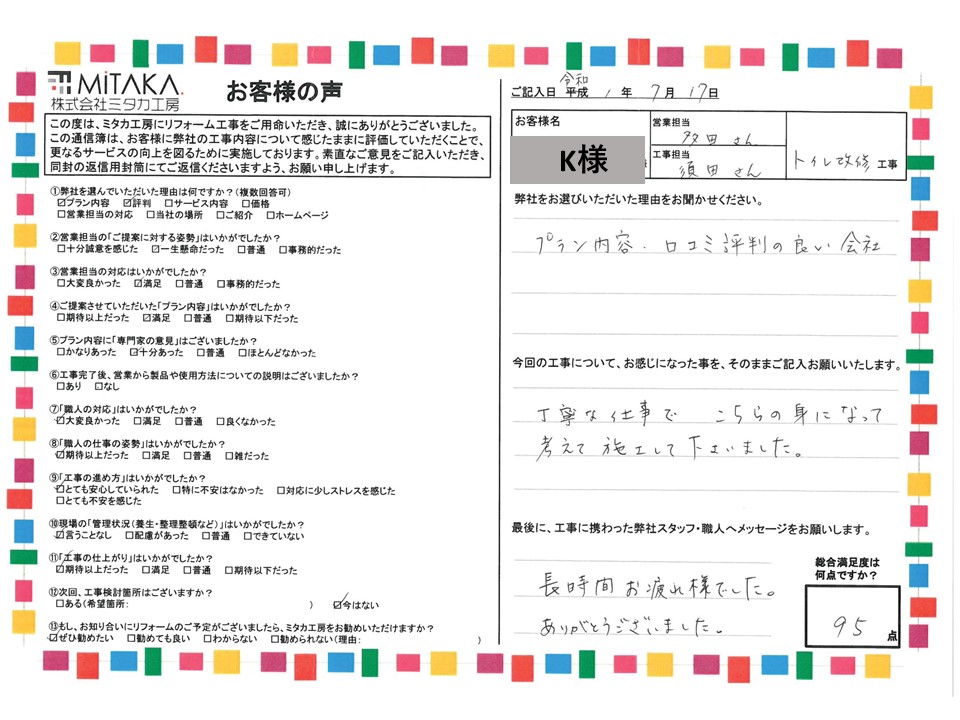 MiTAKA.
株式会社ミタカ工房
お客様の声
この度は、ミタカ工房にリフォーム工事をご用命いただき、誠にありがとうございました。
この通信簿は、お客様に弊社の工事内容について感じたままに評価していただくことで、
更なるサービスの向上を図るために実施しております。素直なご意見をご記入いただき、
同封の返信用封筒にてご返信くださいますよう、お願い申し上げます。
①弊社を選んでいただいた理由は何ですか？（複数回答可）
☑プラン内容 ☑評判 □サービス内容 □価格
□営業担当の対応 □当社の場所 □ご紹介 □ホームページ
②営業担当の「ご提案に対する姿勢」はいかがでしたか？
□十分誠意を感じた ☑一生懸命だった □普通 □事務的だった
③営業担当の対応はいかがでしたか？
□大変良かった ☑満足 □普通 □事務的だった
④ご提案させていただいた「プラン内容」はいかがでしたか？
□期待以上だった ☑満足 □普通 □期待以下だった
⑤プラン内容に「専門家の意見」はございましたか？
□かなりあった ☑十分あった □普通 □ほとんどなかった
⑥工事完了後、営業から製品や使用方法についての説明はございましたか？
□あり □なし
⑦「職人の対応」はいかがでしたか？
☑大変良かった □満足 □普通 □良くなかった
⑧「職人の仕事の姿勢」はいかがでしたか？
☑期待以上だった □満足 □普通 □雑だった
⑨「工事の進め方」はいかがでしたか？
☑とても安心していられた □特に不安はなかった □対応に少しストレスを感じた
□とても不安を感じた
⑩現場の「管理状況（養生・整理整頓など）」はいかがでしたか？
☑言うことなし □配慮があった □普通 □できていない
⑪「工事の仕上がり」はいかがでしたか？
☑期待以上だった □満足 □普通 □期待以下だった
⑫次回、工事検討箇所はございますか？
□ある（希望箇所： ） ☑今はない
⑬もし、お知り合いにリフォームのご予定がございましたら、ミタカ工房をお勧めいただけますか？
☑ぜひ勧めたい □勧めても良い □わからない □勧められない（理由： ）
令和
ご記入日 平成 1 年 7 月 17 日
お客様名
K様
営業担当
多田 さん
工事担当
須田 さん
トイレ改修 工事
弊社をお選びいただいた理由をお聞かせください。
プラン内容．口コミ評判の良い会社
今回の工事について、お感じになった事を、そのままご記入お願いいたします。
丁寧な仕事で こちらの身になって
考えて施工して下さいました。
最後に、工事に携わった弊社スタッフ・職人へメッセージをお願いします。
長時間お疲れ様でした。
ありがとうございました。
総合満足度は
何点ですか？
95 点